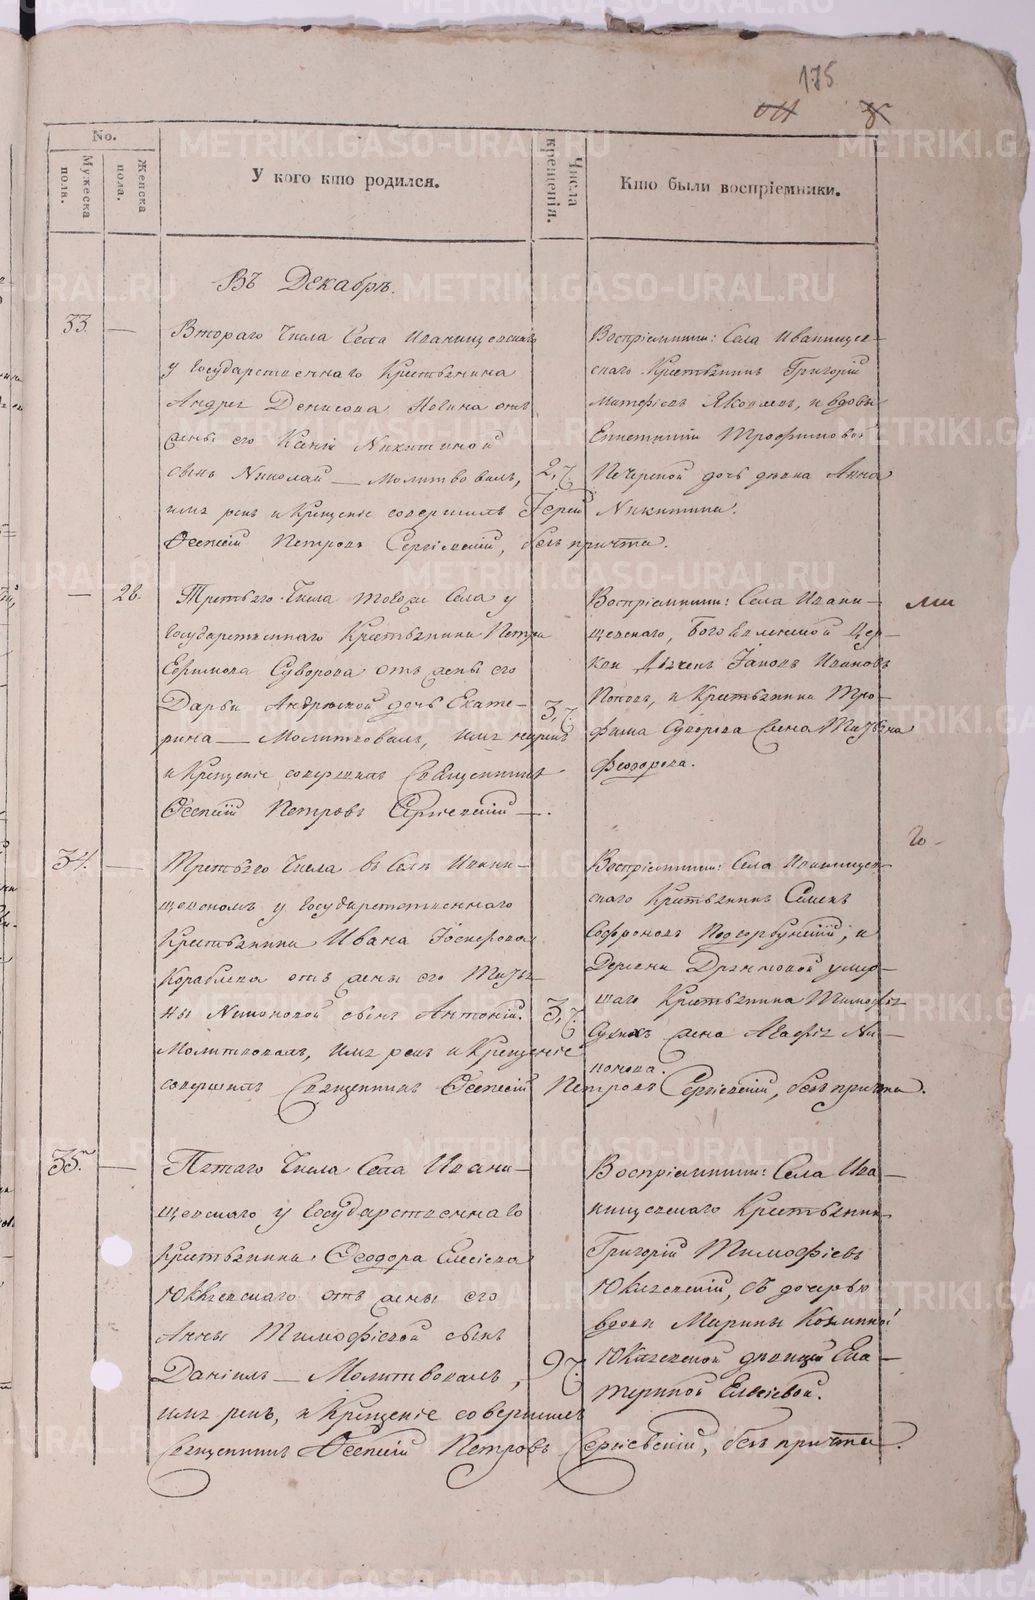 175
No.
Мужеска пола.
Женска пола.
У кого кто родился.
Числа крещенія.
Кто были воспріемники.
Въ Декабрѣ.
33. —
Втораго Числа Села Иванищевскаго
у Государственнаго Крестьянина
Андрея Денисова от
жены его Никитиной
сынъ Николай — Молитвовалъ,
имя рекъ и Крещеніе совершилъ Іерей
Петровъ Сергіевскій, безъ причта.
2,
Воспріемники: Села Иванищев-
скаго Крестьянинъ Григорій
Яковлевъ, и вдовы
Трофимовой
дочь дѣвка Анна
Никитина.
— 26.
Третьяго Числа тогожъ Села у
Государственнаго Крестьянина Петра
Ефимова Суворова отъ жены его
Дарьи Андреевой дочь Екате-
рина — Молитвовалъ, имя нарекъ
и Крещеніе совершилъ Священникъ
Петровъ Сергіевскій —.
3,
Воспріемники: Села Ивани-
щевскаго, Богоявленской Цер-
кви Дьячекъ Іаковъ Ивановъ
Поповъ, и Крестьянина Тро-
фима Суворова жена Татьяна
Феодорова.
34. —
Третьяго Числа въ Селѣ Ивани-
щевскомъ у Государственнаго
Крестьянина Ивана
отъ жены его Татья-
ны сынъ Антоній.
Молитвовалъ, имя рекъ и Крещеніе
совершилъ Священникъ Петровъ Сергіевскій, безъ причта.
3,
Воспріемники: Села Иванищев-
скаго Крестьянинъ Семенъ
Софроновъ Подгорбунскій, и
Деревни умер-
шаго Крестьянина Тимофея
жена Агафія
35. —
Пятаго Числа Села Ивани-
щевскаго у Государственнаго
Крестьянина Ѳеодора
отъ жены его
Анны Тимофѣевой сынъ
Даніилъ — Молитвовалъ,
имя рекъ, и Крещеніе совершилъ
Священникъ Петровъ Сергіевскій, безъ причта.
9,
Воспріемники: Села Ива-
нищевскаго Крестьянинъ
Григорій Тимофѣевъ
съ дочерью
вдовы Марины
дѣвицей Ека-
териной